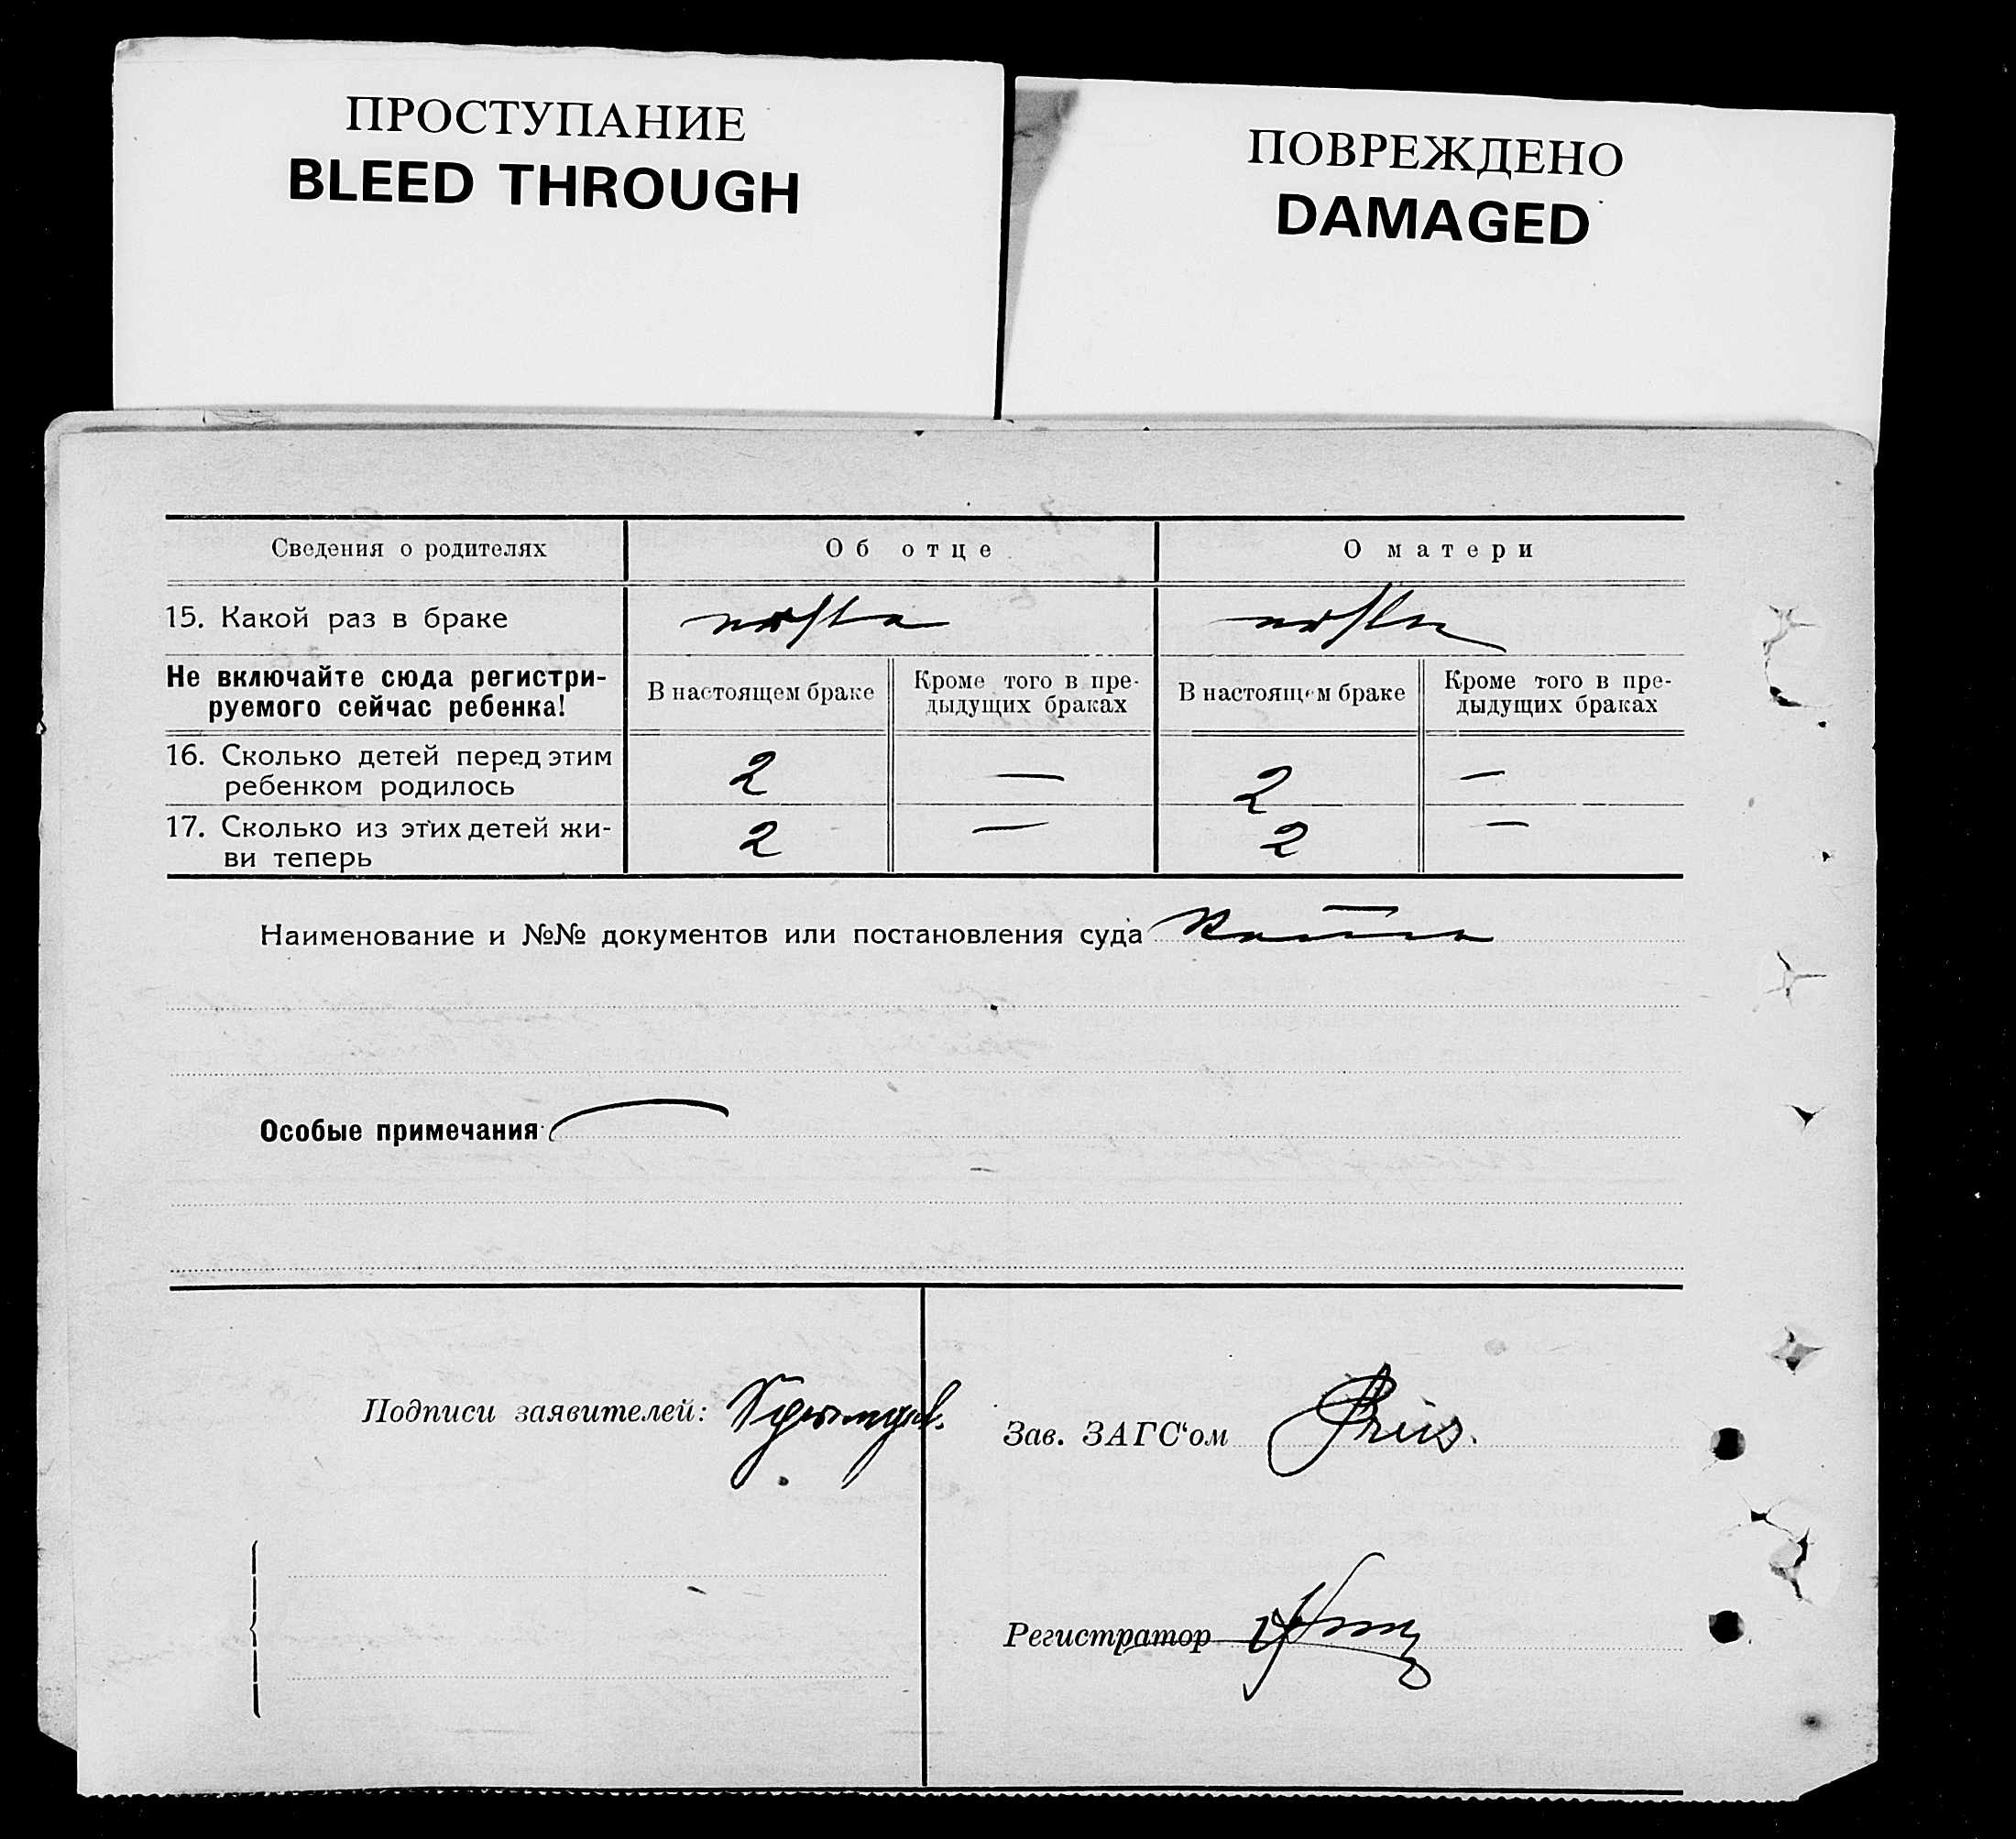 ПРОСТУПАНИЕ
BLEED THROUGH
ПОВРЕЖДЕНО
DAMAGED
Сведения о родителях Об отце О матери
15. Какой раз в браке
Не включайте сюда регистри-
руемого сейчас ребенка!
В настоящем браке
Кроме того в пре-
дыдущих браках
В настоящем браке
Кроме того в пре-
дыдущих браках
16. Сколько детей перед этим
ребенком родилось
2 — 2 —
17. Сколько из этих детей жи-
ви теперь
2 — 2 —
Наименование и №№ документов или постановления суда
Особые примечания
Подписи заявителей:
Зав. ЗАГС‘ом
Регистратор